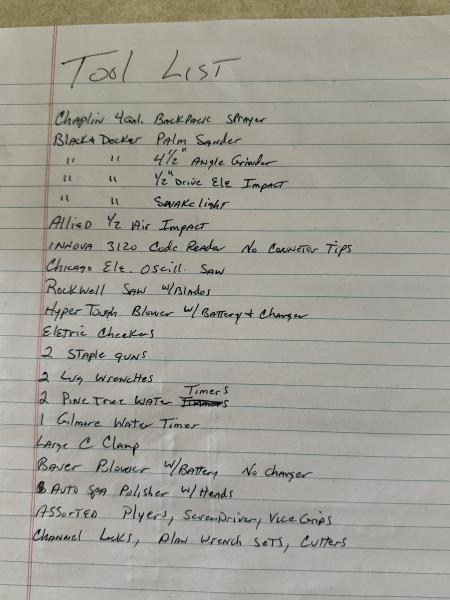 Tool List
Chaplin 4Gal. BackPack Sprayer
Black & Decker Palm Sander
" " 4½" Angle Grinder
" " ½" Drive Ele Impact
" " Snakelight
Allied ½ Air Impact
INNOVA 3120 Code Reader No Connetor Tips
Chicago Ele. Oscill. Saw
Rockwell Saw w/Blades
Hyper Tough Blower w/Battery & Charger
Eletric Checkers
2 Staple guns
2 Lug Wrenches
2 Pine Tree Water Timers
1 Gilmore Water Timer
Large C Clamp
Bauer Blower w/Battery No charger
Auto Spa Polisher w/Heads
Assorted Plyers, ScrewDriver, Vice Grips
Channel Locks, Alan Wrench sets, Cutters